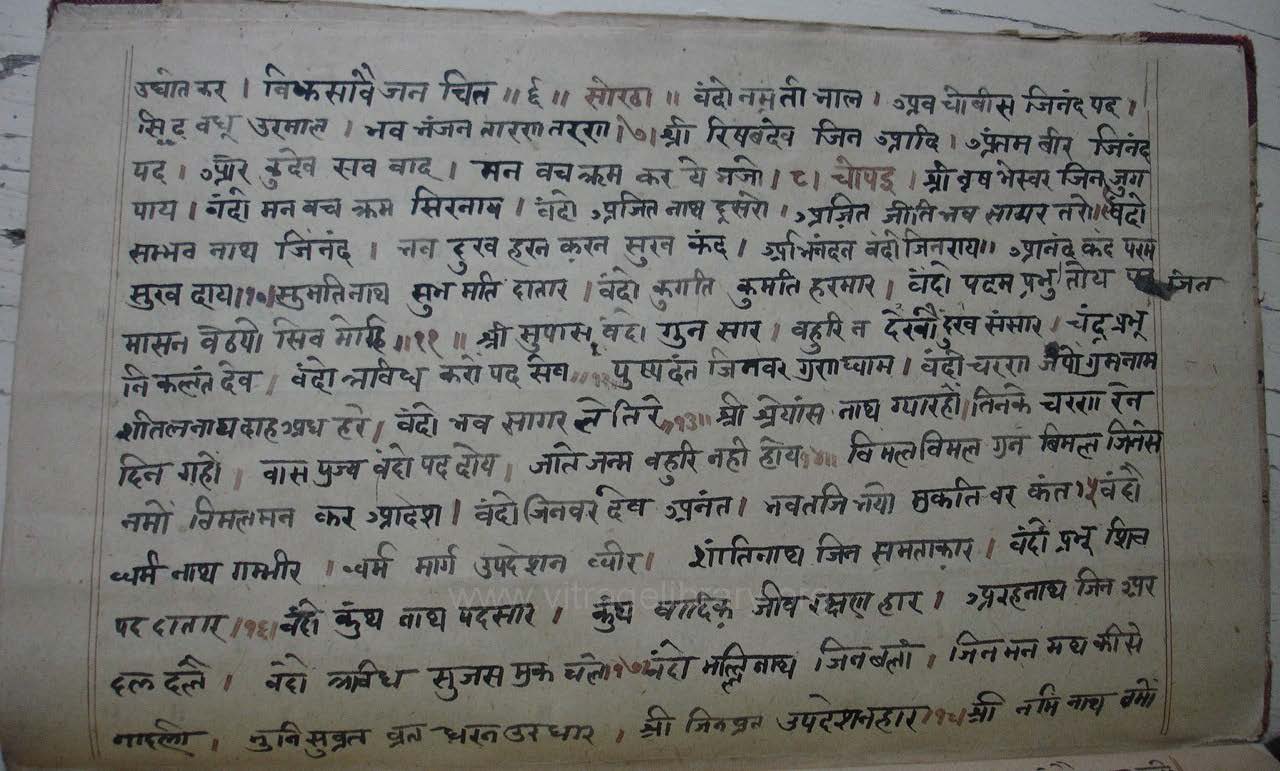 उद्योत कर । विकसावै जन चित ॥ ६ ॥ सोरठा ॥ वंदो नमती भाल । अब चोबीस जिनंद पद ।
सिद्ध वधू उरमाल । भव भंजन तारण तरण । ७ । श्री रिषबदेव जिन आदि । अंतम वीर जिनंद
पद । और कुदेव सब वाद । मन वच क्रम कर ये भजो । ८ । चोपइ । श्री वृषभेस्वर जिन जुग
पाय । वंदो मन बच क्रम सिरनाय । वंदो अजित नाथ दूसरो । अजित जीति भव सायर तरो । ९ वंदो
सम्भव नाथ जिनंद । भव दुख हरन करन सुख कंद । अभिनंदन वंदो जिनराय । आनंद कंद परम
सुख दाय । १० । सुमतिनाथ सुभ मति दातार । वंदो कुगति कुमति हरमार । वंदो पदम प्रभु तोय जित
मासन वैठयो सिव मोहि ॥ ११ ॥ श्री सुपास वंदो गुन सार । बहुरि न देखौ दुख संसार । चंद्र प्रभू
निकलंत देव । वंदो त्रविध करो पद सेव । १२ पुष्पदंत जिनवर गुणधाम । वंदो चरण जपो गुमनाम
शीतलनाथ दाह अघ हरे । वंदो भव सागर ते तिरे । १३ । श्री श्रेयांस नाथ ग्यारहों । तिनके चरण रेन
दिन गहो । वास पुज्य वंदो पद दोय । जाते जन्म बहुरि नही होय १४ । विमल विमल गुन बिमल जिनेस
नमों विमलमन कर आदेश । वंदो जिनवर देव अनंत । भवतजि भयो मुकति वर कंत १५ वंदौ
धर्म नाथ गम्भीर । धर्म मार्ग उपदेशन धीर । शांतिनाथ जिन समताकार । वंदो प्रभू शिव
पद दातार । १६ । वंदो कुंथ नाथ पदसार । कुंथ वादिक जीव रक्षण हार । अरहनाथ जिन अर
दल दलै । वंदो त्रविध सुजस मुक चलो १७ वंदो मल्लि नाथ जिन बलो । जिन मन मथ की से
मुनि सुव्रत व्रत धरन उर धार । श्री जिन व्रत उपदेशनहार । १८ श्री नमि नाथ नमों
www.vitragelibrary